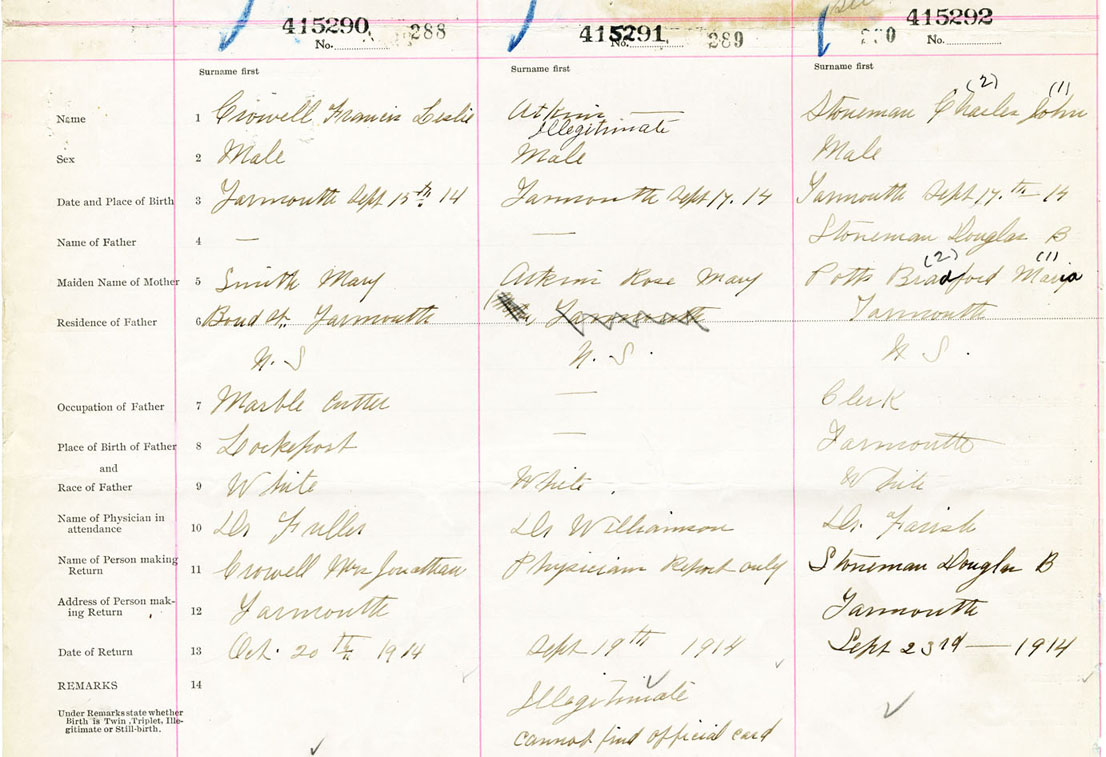 415290 288 415291 289 290 415292
No. No. No.
Surname first Surname first Surname first
(2) (1)
Name 1 Crowell Francis Leslie Atkins — Stoneman Charles John
Illegitimate
Sex 2 Male Male Male
Date and Place of Birth 3 Yarmouth Sept 15th 14 Yarmouth Sept 17. 14 Yarmouth Sept 17.th 14
Name of Father 4 — — Stoneman Douglas B
(2) (1)
Maiden Name of Mother 5 Smith Mary Atkins Rose Mary Potts Bradford Maria
Residence of Father 6 Bond St. Yarmouth Yarmouth Yarmouth
N. S N. S. N S.
Occupation of Father 7 Marble Cutter — Clerk
Place of Birth of Father 8 Lockeport — Yarmouth
and
Race of Father 9 White White. White
Name of Physician in
attendance 10 Dr Fuller Dr Williamson Dr. Farish
Name of Person making
Return 11 Crowell Mrs Jonathan Physician Report only Stoneman Douglas B
Address of Person mak-
ing Return 12 Yarmouth Yarmouth
Date of Return 13 Oct. 20th 1914 Sept 19th 1914 Sept 23rd — 1914
REMARKS 14
Illegitimate
Under Remarks state whether
Birth is Twin, Triplet, Ille-
gitimate or Still-birth.
cannot find official card